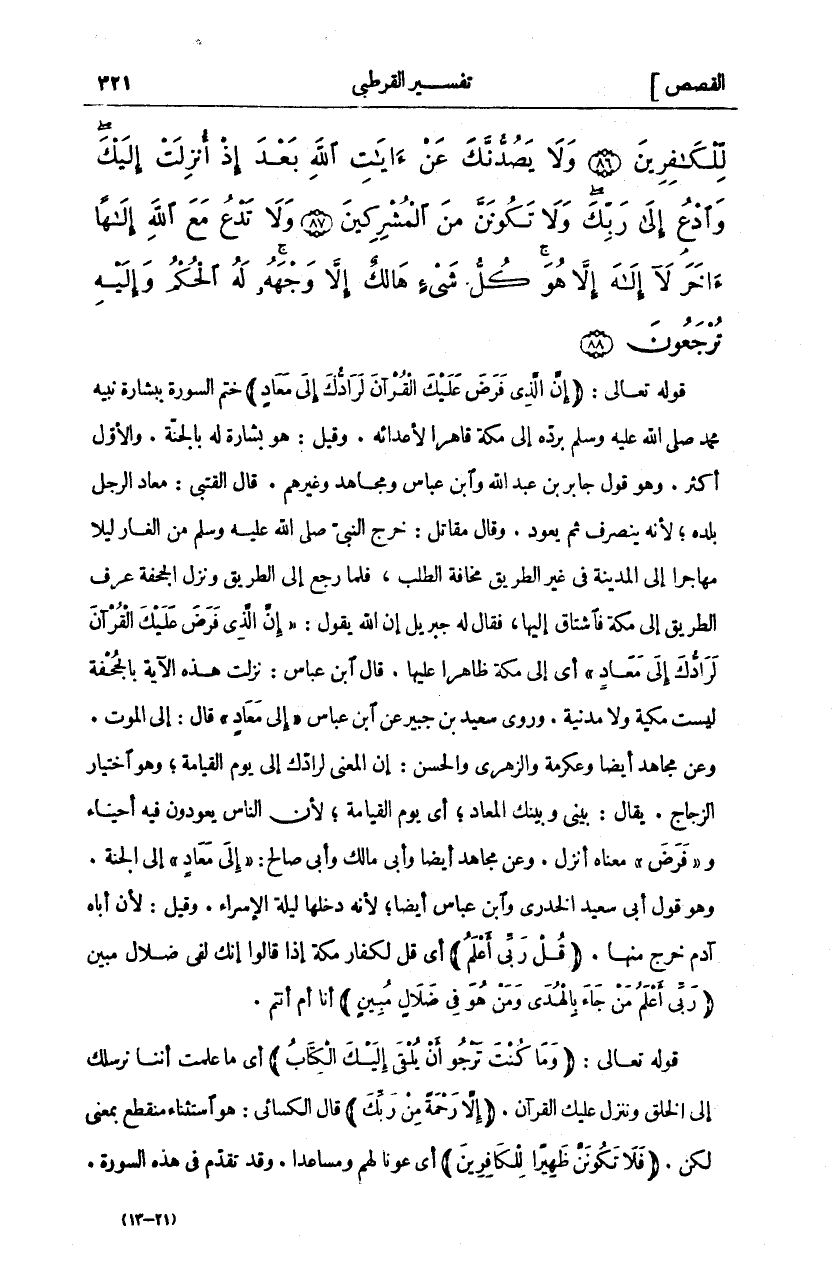 القصص] تفسير القرطبى ٣٢١
لِّلْكَٰفِرِينَ ﴿٨٦﴾ وَلَا يَصُدُّنَّكَ عَنْ ءَايَٰتِ ٱللَّهِ بَعْدَ إِذْ أُنزِلَتْ إِلَيْكَۖ
وَٱدْعُ إِلَىٰ رَبِّكَۖ وَلَا تَكُونَنَّ مِنَ ٱلْمُشْرِكِينَ ﴿٨٧﴾ وَلَا تَدْعُ مَعَ ٱللَّهِ إِلَٰهًا
ءَاخَرَۘ لَآ إِلَٰهَ إِلَّا هُوَۚ كُلُّ شَىْءٍ هَالِكٌ إِلَّا وَجْهَهُۥۚ لَهُ ٱلْحُكْمُ وَإِلَيْهِ
تُرْجَعُونَ ﴿٨٨﴾
قوله تعالى : ﴿إِنَّ الَّذِى فَرَضَ عَلَيْكَ الْقُرْآنَ لَرَادُّكَ إِلَى مَعَادٍ﴾ ختم السورة ببشارة نبيه
محمد صلى الله عليه وسلم بردّه إلى مكة قاهرا لأعدائه . وقيل : هو بشارة له بالجنّة . والأوّل
أكثر . وهو قول جابر بن عبد الله وٱبن عباس ومجاهد وغيرهم . قال القتبى : معاد الرجل
بلده ؛ لأنه ينصرف ثم يعود . وقال مقاتل : خرج النبىّ صلى الله عليه وسلم من الغار ليلا
مهاجرا إلى المدينة فى غير الطريق مخافة الطلب ، فلما رجع إلى الطريق ونزل الجحفة عرف
الطريق إلى مكة فٱشتاق إليها ، فقال له جبريل إن الله يقول : « إِنَّ الَّذِى فَرَضَ عَلَيْكَ الْقُرْآنَ
لَرَادُّكَ إِلَى مَعَادٍ » أى إلى مكة ظاهرا عليها . قال ٱبن عباس : نزلت هذه الآية بالجُحْفة
ليست مكية ولا مدنية . وروى سعيد بن جبير عن ٱبن عباس « إلى مَعَادٍ » قال : إلى الموت .
وعن مجاهد أيضا وعكرمة والزهرى والحسن : إن المعنى لرادّك إلى يوم القيامة ؛ وهو ٱختيار
الزجاج . يقال : بينى وبينك المعاد ؛ أى يوم القيامة ؛ لأن الناس يعودون فيه أحياء
و « فَرَضَ » معناه أنزل . وعن مجاهد أيضا وأبى مالك وأبى صالح : « إِلَى مَعَادٍ » إلى الجنة .
وهو قول أبى سعيد الخدرى وٱبن عباس أيضا ؛ لأنه دخلها ليلة الإسراء . وقيل : لأن أباه
آدم خرج منها . ﴿ قُلْ رَبِّى أَعْلَمُ ﴾ أى قل لكفار مكة إذا قالوا إنك لفى ضلال مبين
﴿ رَبِّى أَعْلَمُ مَنْ جَاءَ بِالْهُدَى وَمَنْ هُوَ فِى ضَلَالٍ مُبِينٍ ﴾ أنا أم أنتم .
قوله تعالى : ﴿ وَمَا كُنْتَ تَرْجُو أَنْ يُلْقَى إِلَيْكَ الْكِتَابُ ﴾ أى ما علمت أننا نرسلك
إلى الخلق وننزل عليك القرآن . ﴿إِلَّا رَحْمَةً مِنْ رَبِّكَ﴾ قال الكسائى : هو ٱستثناء منقطع بمعنى
لكن . ﴿ فَلَا تَكُونَنَّ ظَهِيرًا لِلْكَافِرِينَ ﴾ أى عونا لهم ومساعدا . وقد تقدّم فى هذه السورة .
(٢١-١٣)